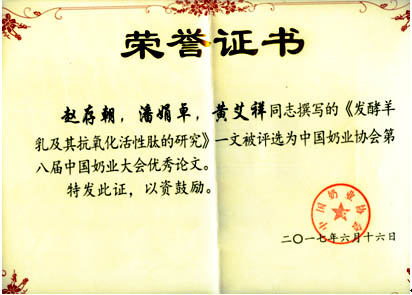 荣誉证书
赵存朝，潘娟卓，黄艾祥同志撰写的《发酵羊
乳及其抗氧化活性肽的研究》一文被评选为中国奶业协会第
八届中国奶业大会优秀论文。
特发此证，以资鼓励。
中国奶业协会
二〇一七年六月十六日